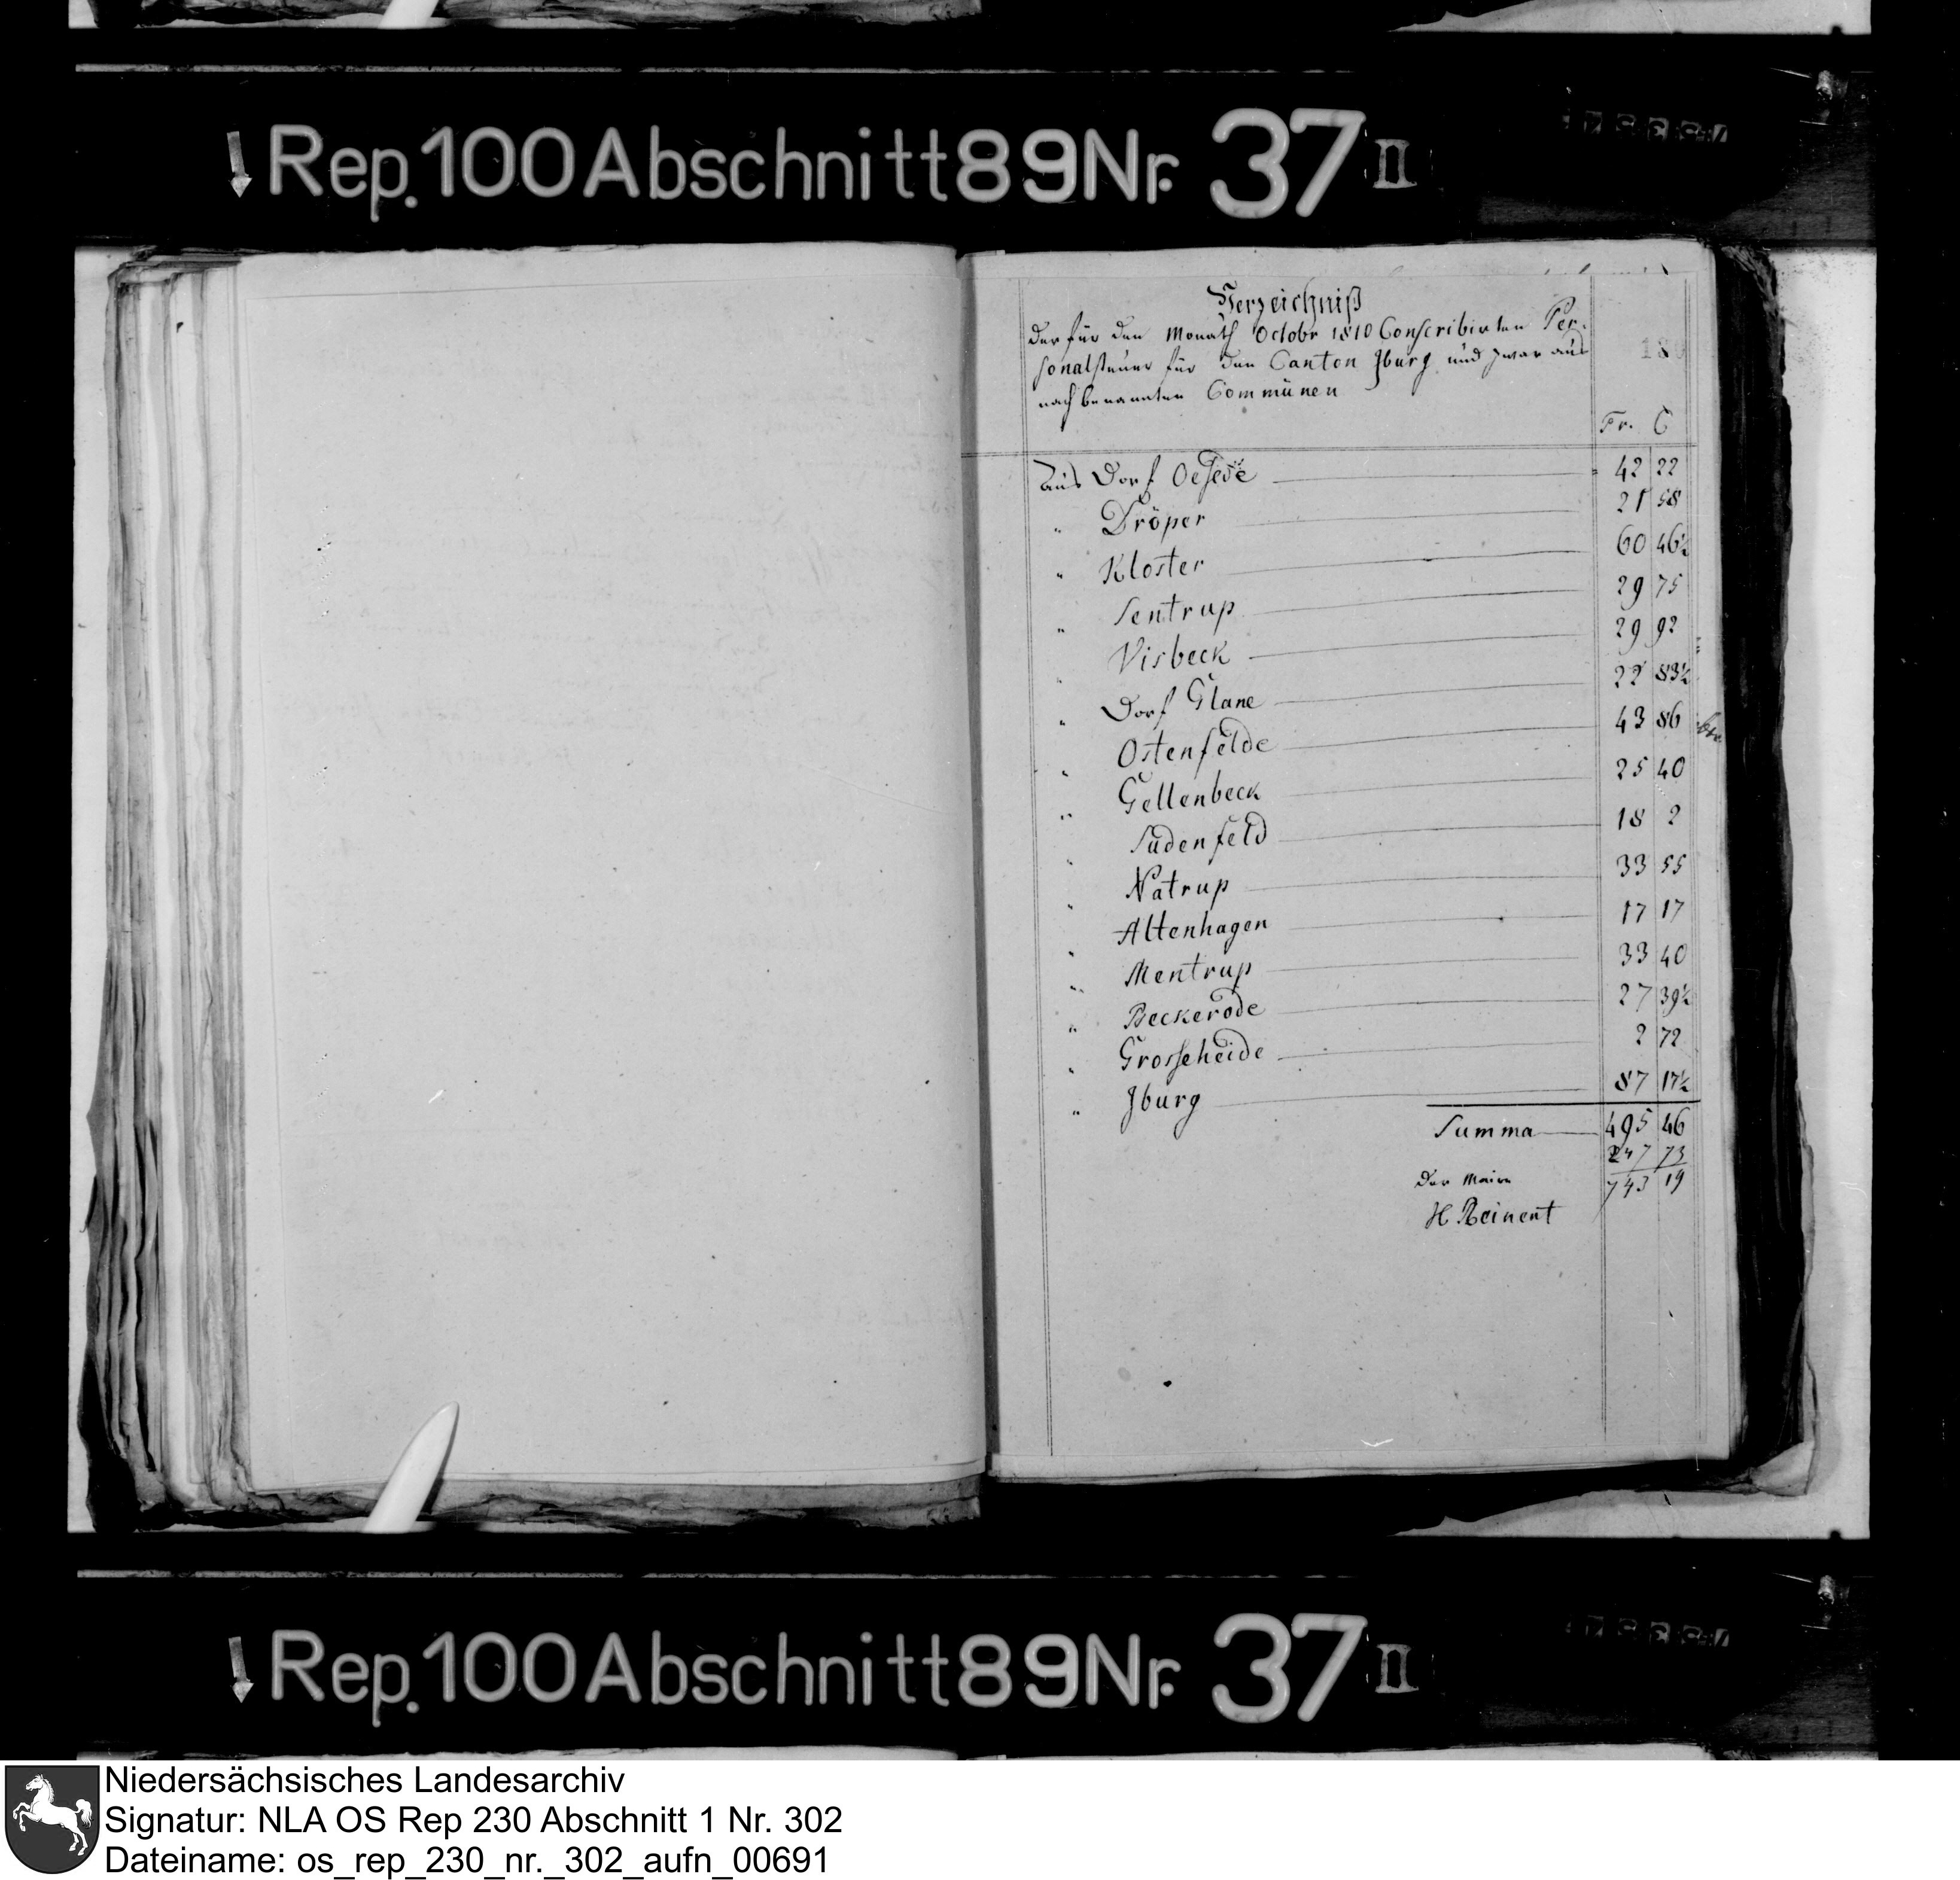 Rep. 100 Abschnitt 89 Nr. 37 II
Verzeichniß
Der für den Monath Octobr 1810 Conscribirten Per-
sonalsteuer für den Canton Jburg und zwar aus
nach benannten Communen
Fr. C
Aus Dorf Oesede 42 22
" Dröper 21 58
" Kloster 60 46½
" Sentrup 29 75
" Visbeck 29 92
" Dorf Glane 22 83½
" Ostenfelde 43 86
" Gellenbeck 25 40
" Südenfeld 18 2
" Natrup 33 55
" Altenhagen 17 17
" Mentrup 33 40
" Beckerode 27 39½
" Grosseheide 2 72
" Jburg 87 17½
Summa 495 46
247 73
743 19
Der Maire
H. Reinert
Rep. 100 Abschnitt 89 Nr. 37 II
Niedersächsisches Landesarchiv
Signatur: NLA OS Rep 230 Abschnitt 1 Nr. 302
Dateiname: os_rep_230_nr._302_aufn_00691